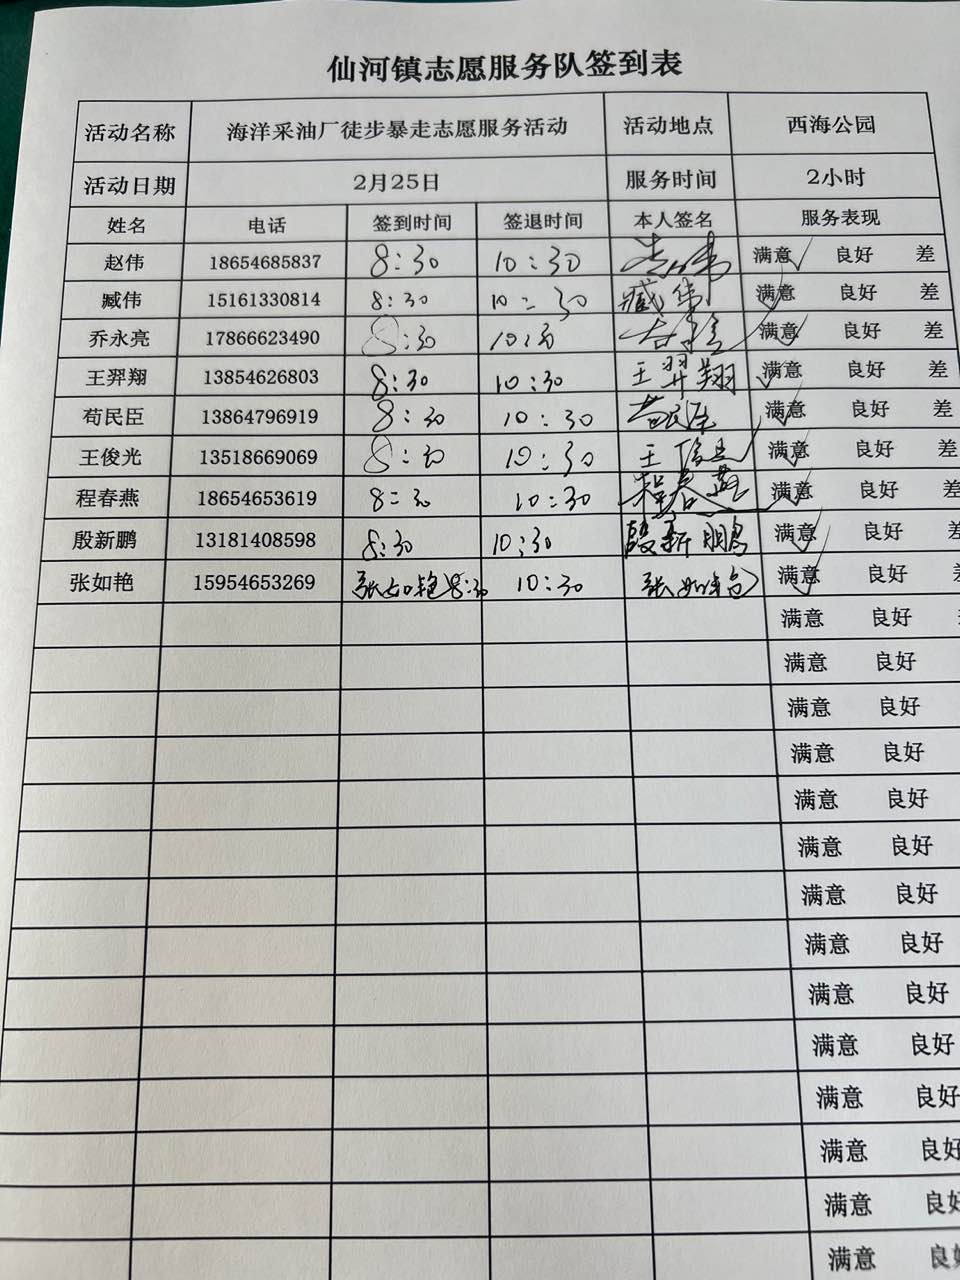 仙河镇志愿服务队签到表
活动名称 海洋采油厂徒步暴走志愿服务活动 活动地点 西海公园
活动日期 2月25日 服务时间 2小时
姓名 电话 签到时间 签退时间 本人签名 服务表现
赵伟 18654685837 8:30 10:30 赵伟 满意 良好 差
臧伟 15161330814 8:30 10:30 臧伟 满意 良好 差
乔永亮 17866623490 8:30 10:30 满意 良好 差
王羿翔 13854626803 8:30 10:30 王羿翔 满意 良好 差
苟民臣 13864796919 8:30 10:30 苟民臣 满意 良好 差
王俊光 13518669069 8:30 10:30 王俊光 满意 良好 差
程春燕 18654653619 8:30 10:30 程春燕 满意 良好 差
殷新鹏 13181408598 8:30 10:30 殷新鹏 满意 良好 差
张如艳 15954653269 张如艳 8:30 10:30 张如艳 满意 良好 差
满意 良好
满意 良好
满意 良好
满意 良好
满意 良好
满意 良好
满意 良好
满意 良好
满意 良好
满意 良好
满意 良好
满意 良好
满意 良好
满意 良好